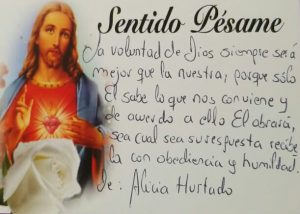 Sentido Pésame
La voluntad de Dios siempre será
mejor que la nuestra, porque sólo
El sabe lo que nos conviene y
de acuerdo a ello El obrará,
sea cual sea su respuesta recibe
la con obediencia y humildad.
De: Alicia Hurtado